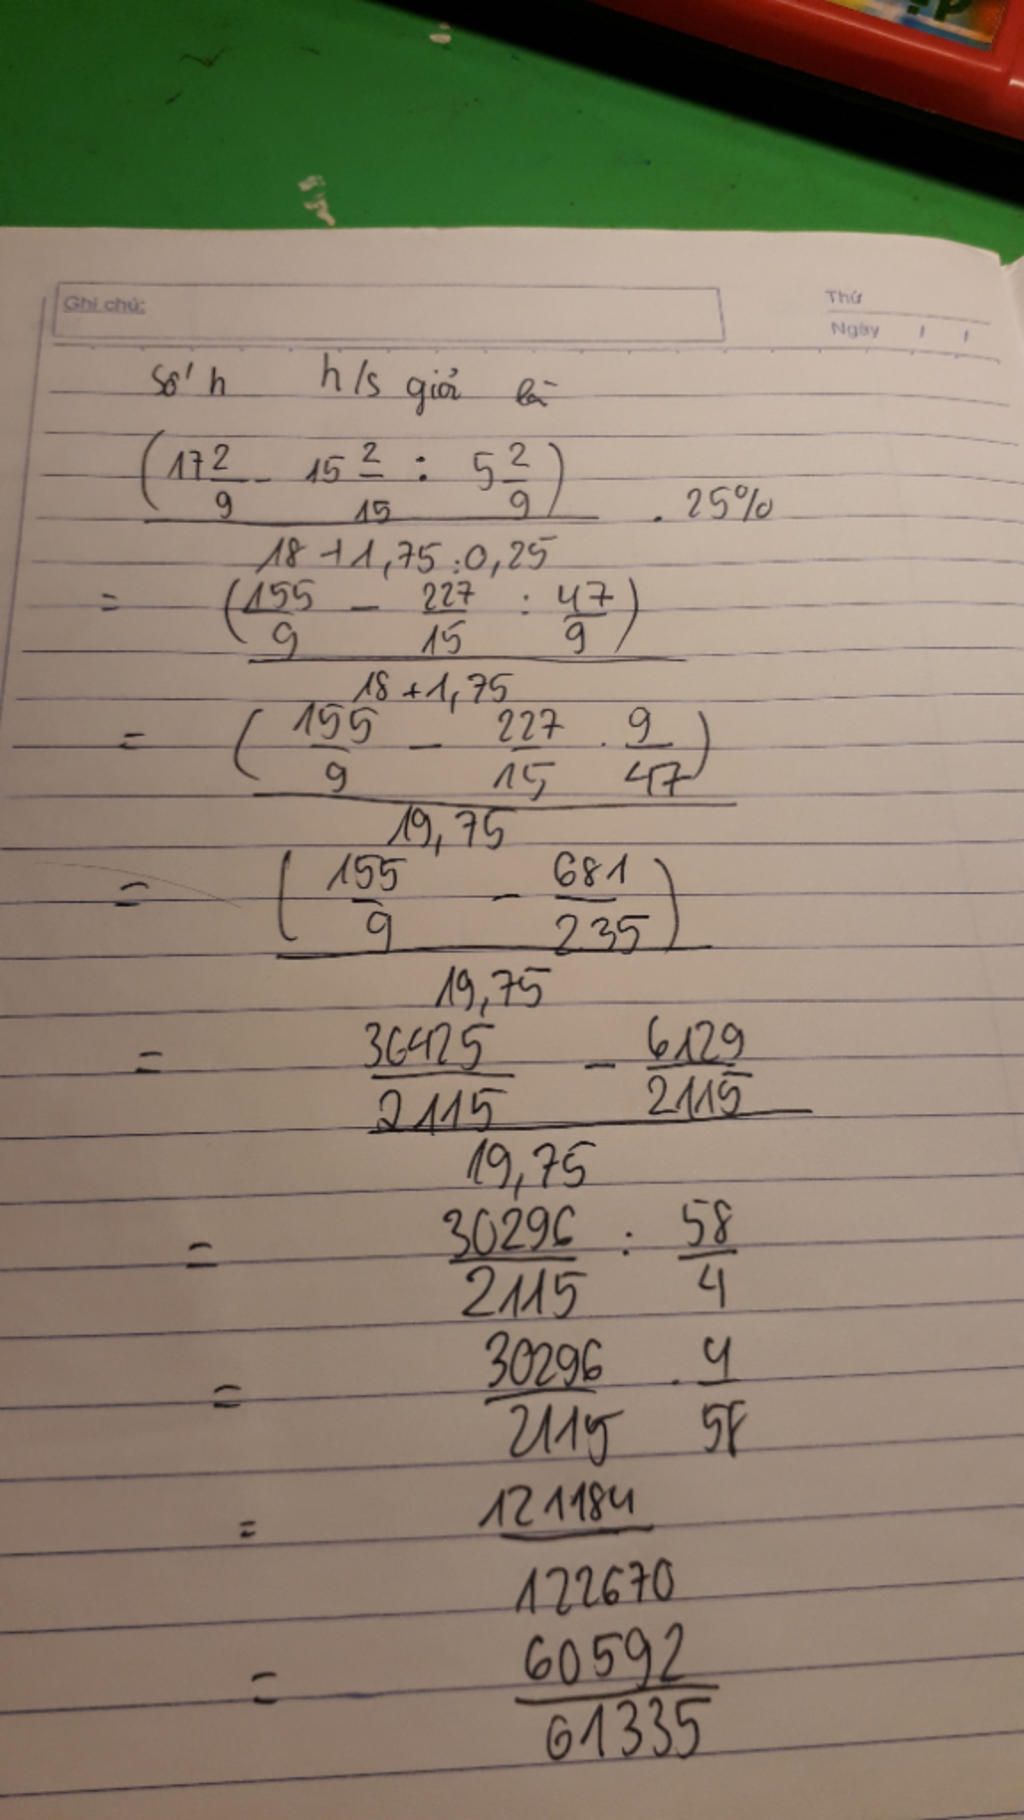 Ghi chú:
Thứ
Ngày / /
Số h h/s giỏi là
(17 2/9 - 15 2/15 : 5 2/9) / (18 + 1,75 : 0,25) . 25%
= (155/9 - 227/15 : 47/9) / (18 + 1,75)
= (155/9 - 227/15 . 9/47) / 19,75
= (155/9 - 681/235) / 19,75
= (36425/2115 - 6129/2115) / 19,75
= 30296/2115 : 58/4
= 30296/2115 . 4/58
= 121184/122670
= 60592/61335